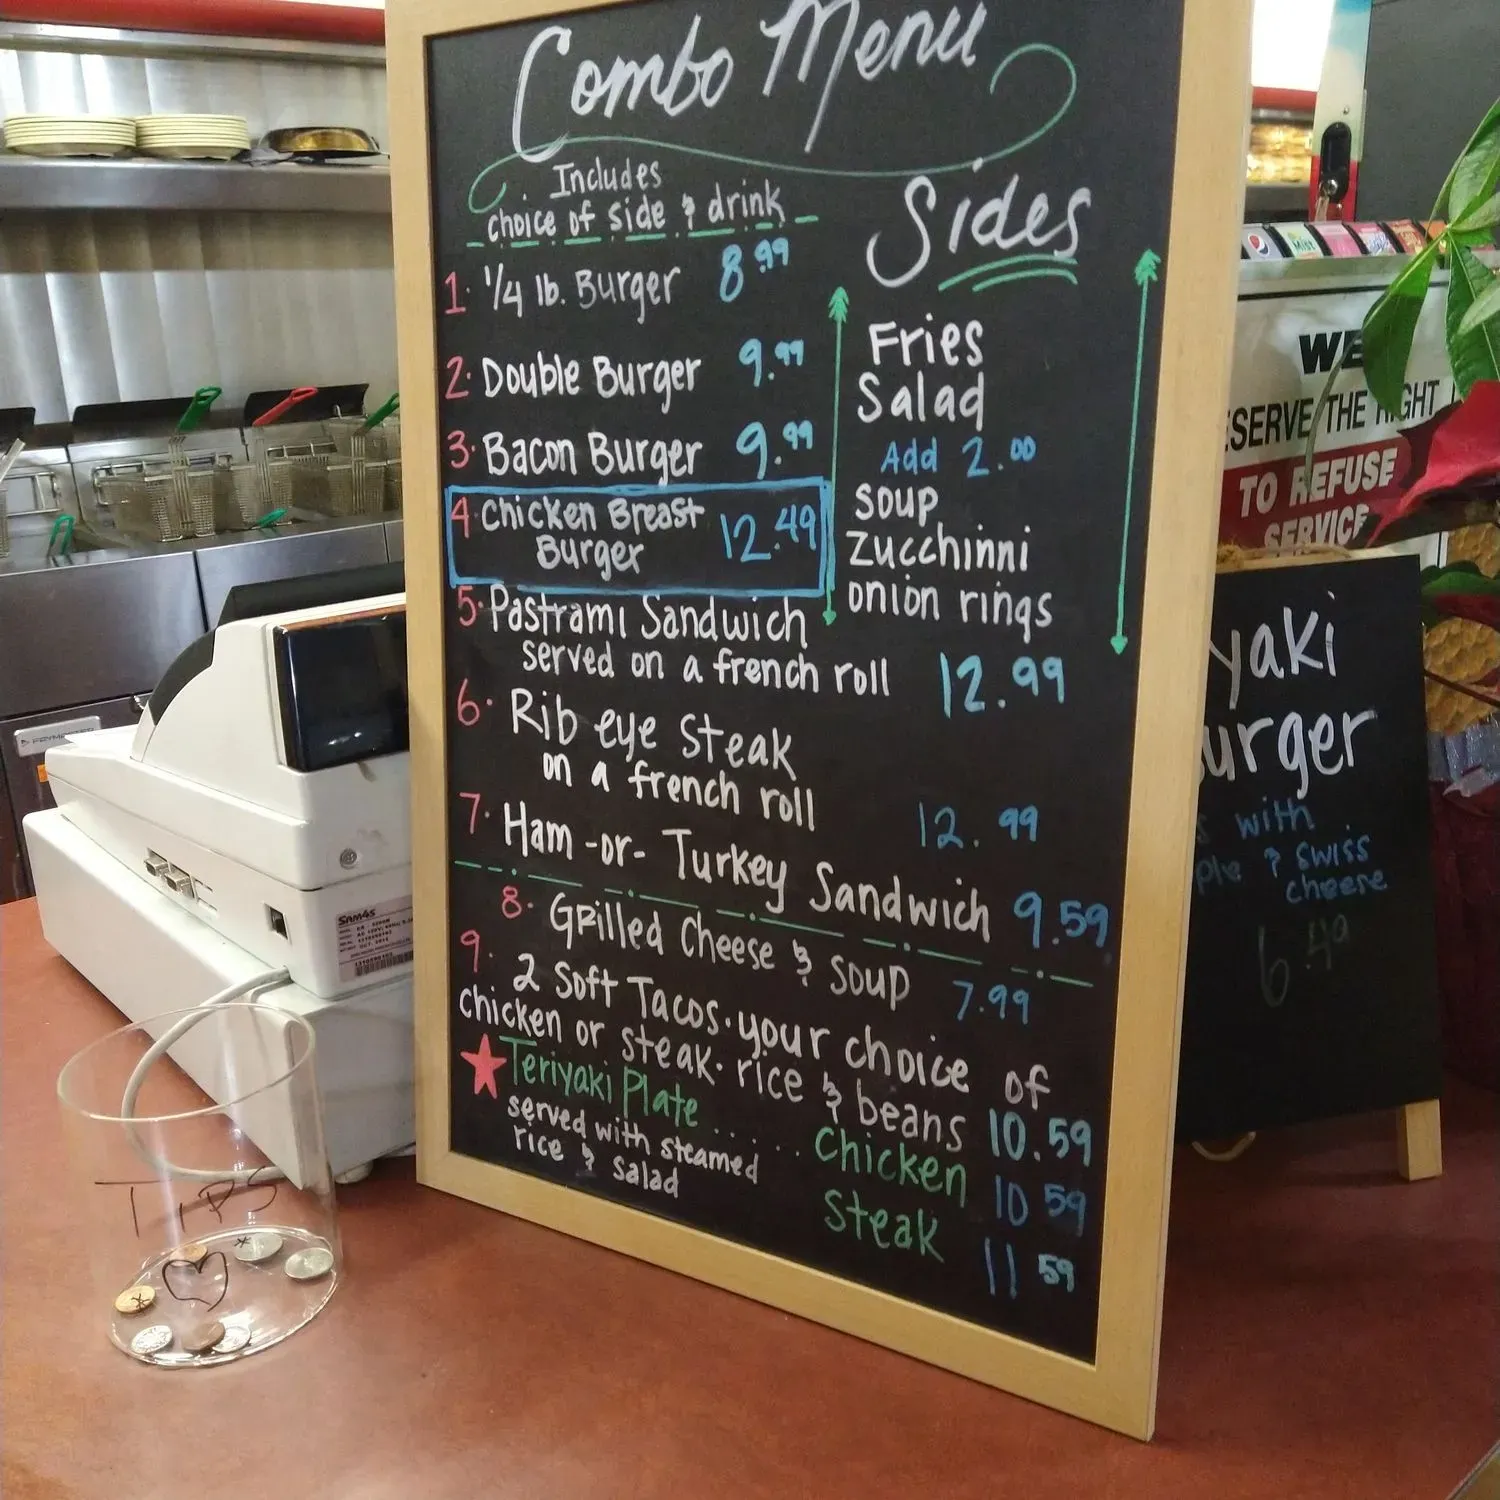 Combo Menu
Includes
choice of side & drink
1. 1/4 lb. Burger 8.99
2. Double Burger 9.99
3. Bacon Burger 9.99
4. Chicken Breast 12.49
Burger
5. Pastrami Sandwich
served on a french roll 12.99
6. Rib eye Steak
on a french roll 12.99
7. Ham -or- Turkey Sandwich 9.59
8. Grilled Cheese & Soup 7.99
9. 2 Soft Tacos. your choice of
chicken or steak. rice & beans 10.59
Teriyaki Plate ..... Chicken 10 59
served with steamed
rice & salad
Steak 11 59
Sides
Fries
Salad
Add 2.00
Soup
Zucchinni
onion rings
WE
RESERVE THE RIGHT
TO REFUSE
SERVICE
yaki
urger
with
ple & swiss
cheese
6.49
SAM4s
TIPS